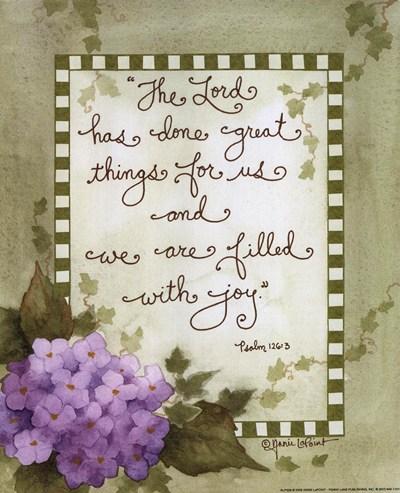 "The Lord
has done great
things for us
and
we are filled
with joy."
Psalm 126:3
© Annie LaPoint